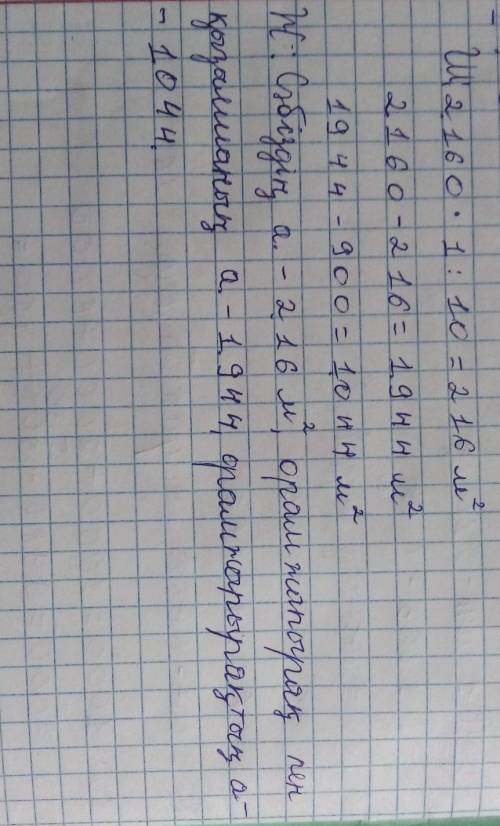 Ш: 2160 · 1 : 10 = 216 м²
2160 - 216 = 1944 м²
1944 - 900 = 1044 м²
Ж: Сәбіздің а. - 216 м², орамжапырақ пен
қызалшаның а. - 1944, орамжапырақтың а -
- 1044.